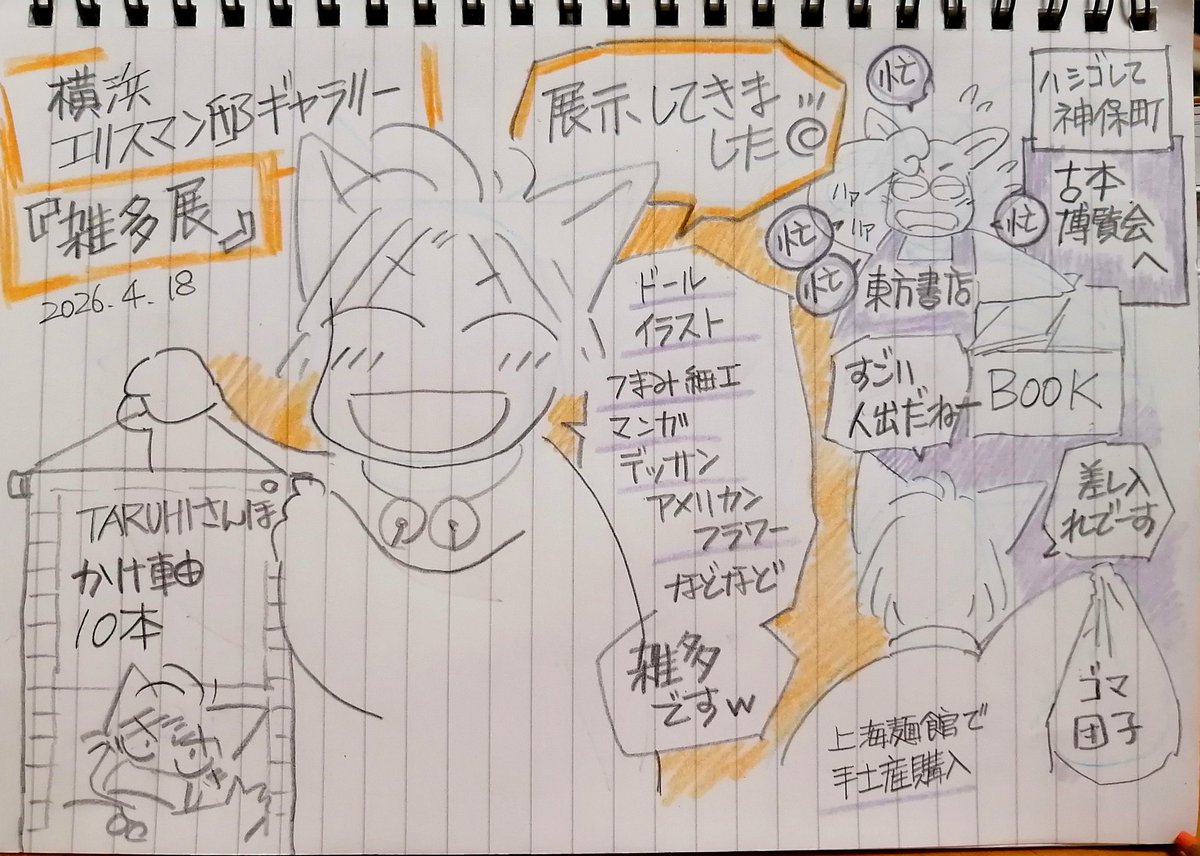 横浜
エリスマン邸ギャラリー
『雑多展』
2026.4.18
展示してきま
した
TARUHIさんぽ
かけ軸
10本
ドール
イラスト
つまみ細工
マンガ
デッサン
アメリカン
フラワー
などなど
雑多
ですw
ハシゴして
神保町
古本
博覧会
へ
忙
忙
忙
忙
ハァ
ハァ
東方書店
BOOK
すごい
人出だねー
差し入
れでーす
ゴマ
団子
上海麺館で
手土産購入